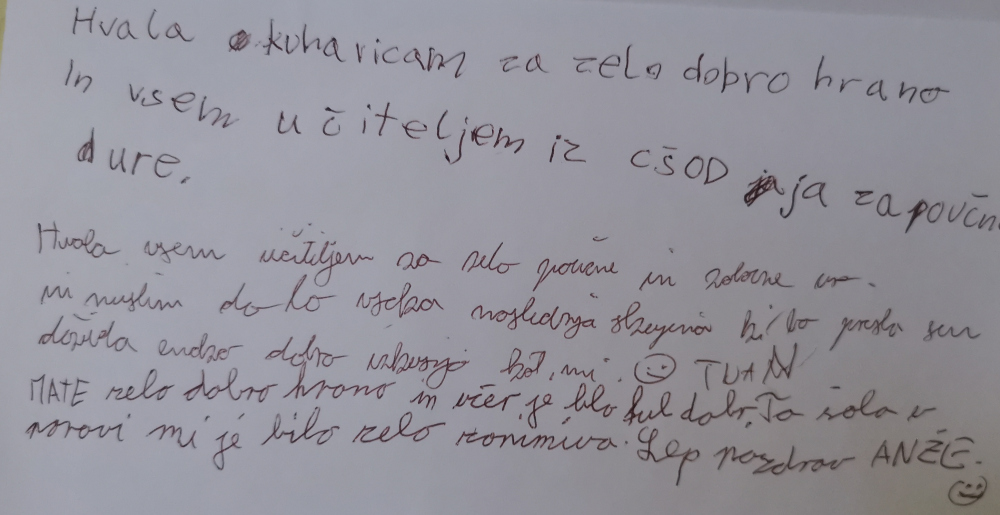 Hvala kuharicam za zelo dobro hrano
In vsem učiteljem iz CŠOD ja za poučn
ure.
Hvala vsem učiteljem za zelo poučne in zabavne
in mislim da bo vsaka naslednja ki bo prišla sem
doživela enako dobro izkušnjo kot mi. TUAN
MATE zelo dobro hrano in včer je blo ful dobr. Ta šola v
naravi mi je bilo zelo zanimiva. Lep pozdrav ANŽE.